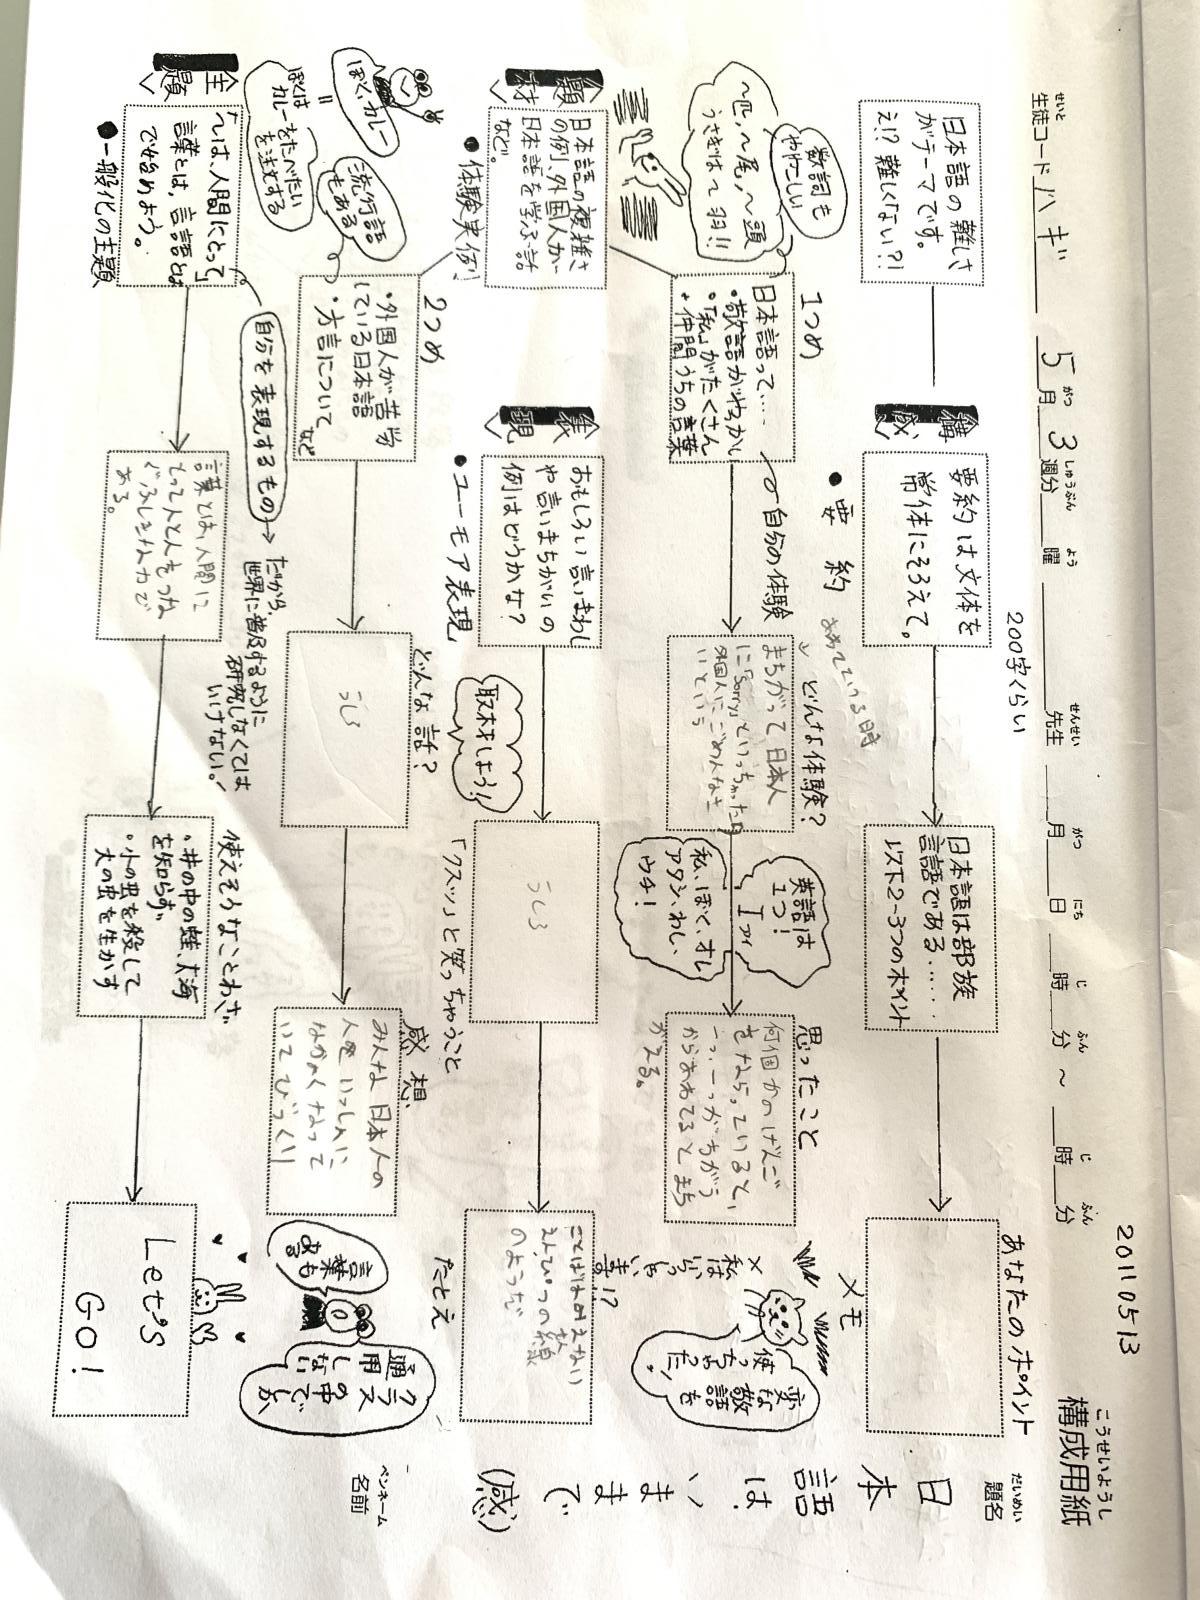 20110513
構成用紙
こうせいようし
せいと
生徒コード ハギ 5月3週分 曜 先生 月 日 時 分 〜 時 分
がつ しゅうぶん よう せんせい がつ にち じ ふん じ ふん
200字くらい
だいめい
題名
日本語は、いままで(感)
ペンネーム
名前
構成
日本語の難しさ
がテーマです。
え!?難しくない?!
要約は文体を
常体にそろえて。
日本語は部族
言語である……
以下2〜3つのポイント
あなたのポイント
●要約
1つめ
数詞も
ややこしい
〜匹、〜尾、〜頭
うさぎは〜羽!!
日本語って…
・敬語がむずかしい
・「私」がたくさん
+仲間うちの言葉
自分の体験
どんな体験?
まちがって日本人
に「sorry」といっちゃったり
外国人にごめんなさ
いという
英語は
1つ!
I アイ
私、ぼく、オレ
アタシ、わし、
ウチ!
思ったこと
何個かのげんご
をならっていると、
一つ一つがちがう
からあわてるとまち
がえる。
メモ
×
私はいらっしゃい
ます!?
変な
敬語を
使っちゃった!
題材
日本語の複雑さ
の例、外国人が
日本語を学ぶ話
など。
●体験実例
表現
おもしろい言いまわし
や言いまちがいの
例はどうかな?
●ユーモア表現
取材しよう!!
うしろ
「クスッ」と笑っちゃうこと
たとえ
ことばは見えない
えんぴつの線
のようだ
2つめ
ぼく、カレー
=
ぼくは
カレーをたべたい
を注文する
流行語
もある
・外国人が苦労
している日本語
・方言について
など
どんな話?
うしろ
感想
みんな日本人の
人をいっしょに
ながくなって
いてびっくり
クラス
の中でしか
通用しない
言葉も
ある
主題
「〜は、人間にとって」
言葉とは、言語とは
で始めよう。
●一般化の主題
自分を表現するもの
だから、
世界に普及するように
研究しなくては
いけない!
言葉とは、人間に
とって人と人をつな
ぐふしぎな力で
ある。
使えそうなことわざ
・井の中の蛙、大海
を知らず
・小の虫を殺して
大の虫を生かす
Let's
GO!